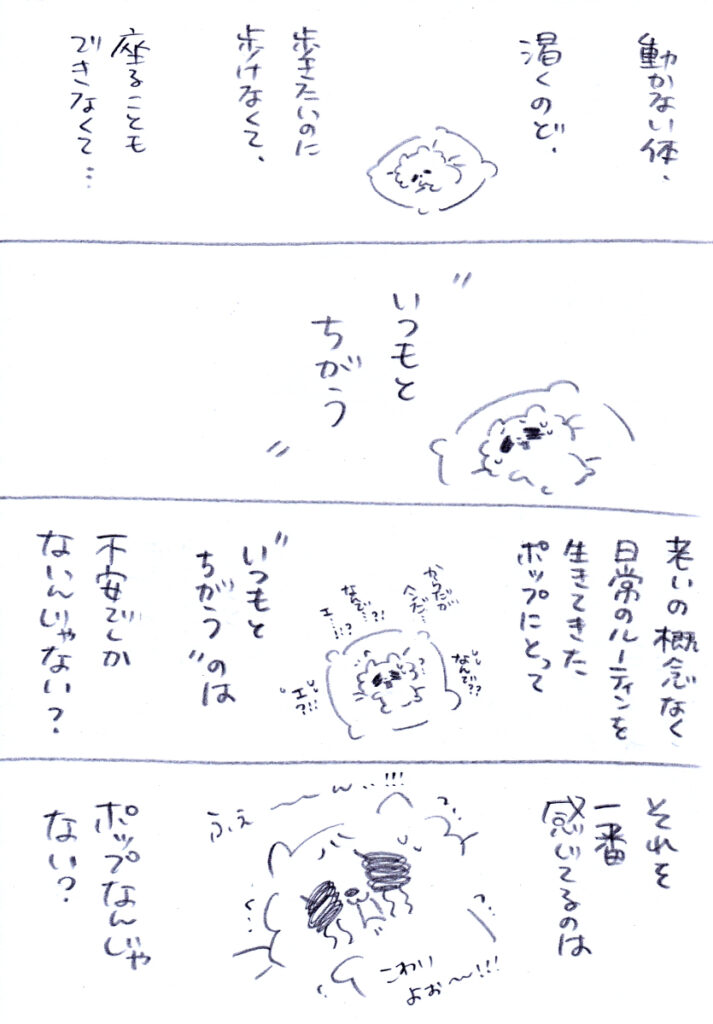 動かない体、
渇くのど、
歩きたいのに
歩けなくて、
座ることも
できなくて…
〝いつもと
ちがう〟
老いの概念なく
日常のルーティンを
生きてきた
ポップにとって
〝いつもと
ちがう〟のは
不安でしか
ないんじゃない?
からだが
へんだ…
なんで…?!
エ…!?
なんで??
エ?!!
それを
一番
感じてるのは
ポップなんじゃ
ない?
ふぇ
〜〜ん…!!!
こわい
よぉ〜〜!!!